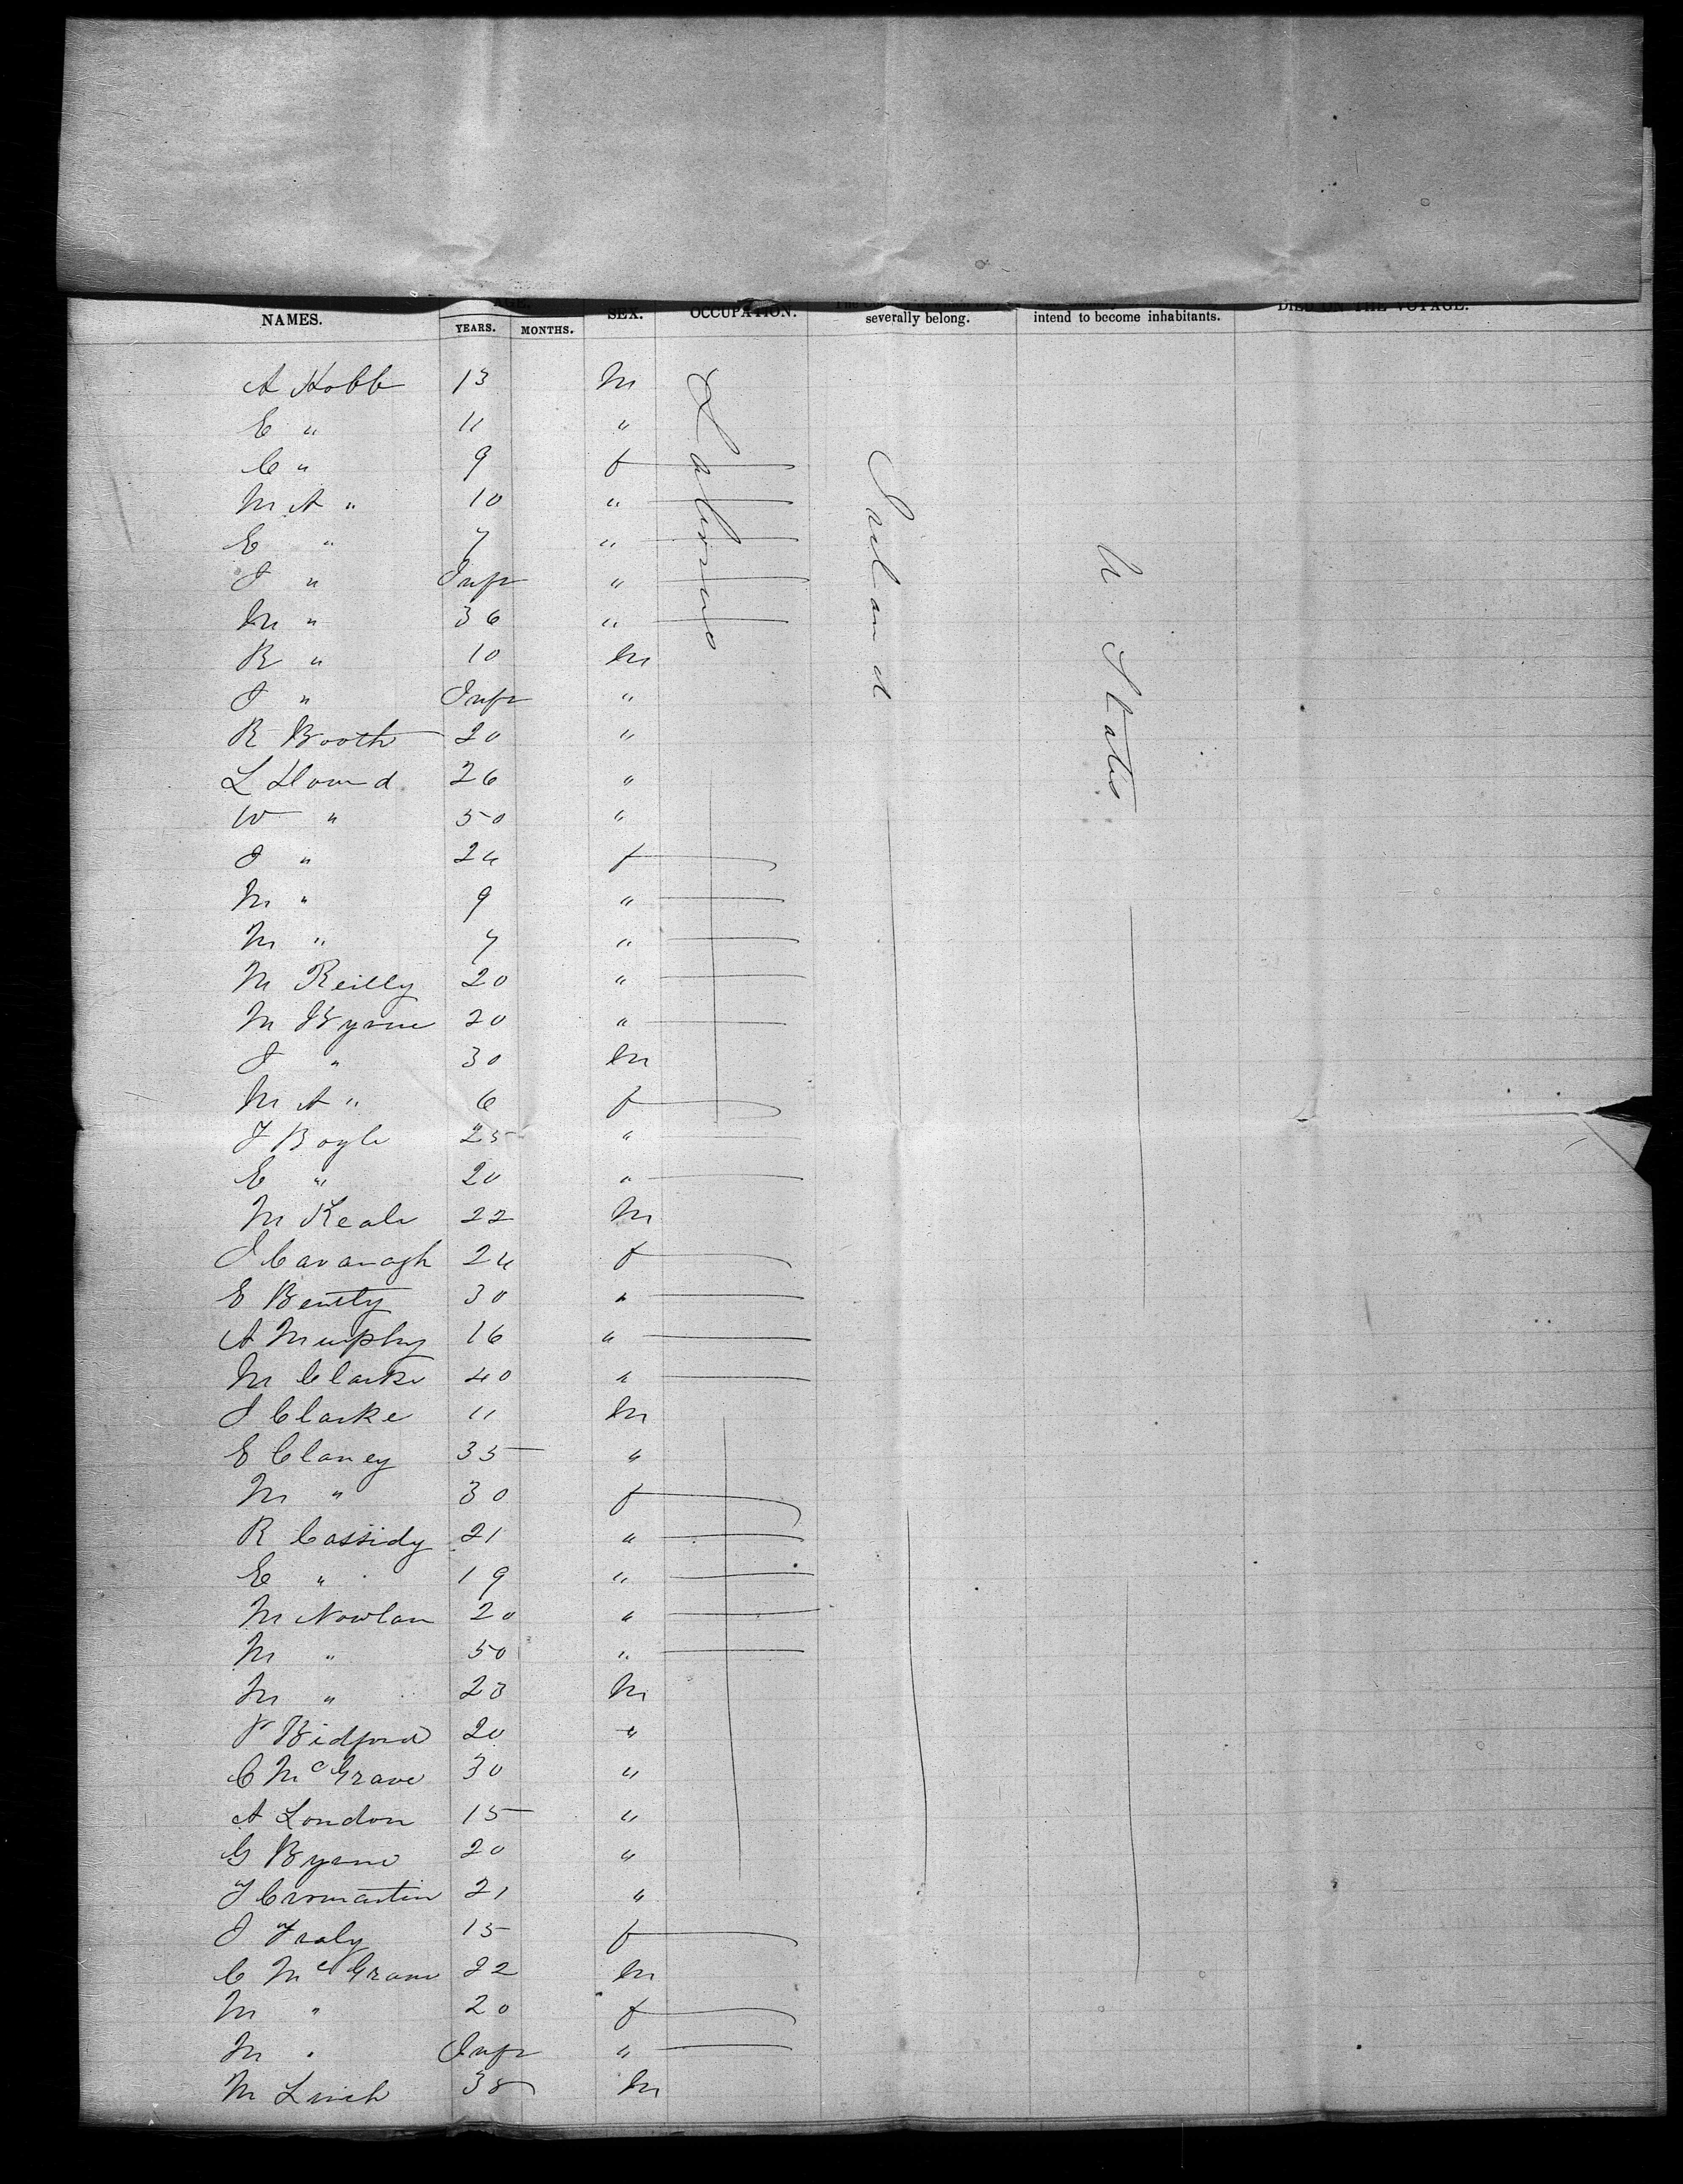 NAMES. YEARS. MONTHS. SEX. OCCUPATION. severally belong. intend to become inhabitants. DIED ON THE VOYAGE.
Labourers
Ireland
U. States
A Hobb 13 M
E " 11 "
C " 9 f
M A " 10 "
E " 7 "
J " Inft "
M " 36 "
R " 10 M
J " Inft "
R Booth 20 "
L 26 "
W " 50 "
J " 24 f
M " 9 "
M " 7 "
M Reilly 20 "
M Byrne 20 "
J " 30 M
M A " 6 f
J Boyle 25 "
E " 20 "
M Keale 22 M
J Cavanagh 24 f
E 30 "
A Murphy 16 "
M Clarke 40 "
J Clarke 11 M
E Clancy 35 "
M " 30 f
R Cassidy 21 "
E " 19 "
M Nowlan 20 "
M " 50 "
M " 23 M
P Bidford 20 "
C McGrave 30 "
A London 15 "
G Byrne 20 "
J Cromartin 21 "
J 15 f
C McGrane 22 M
M " 20 f
M " Inft "
M Linch 38 M